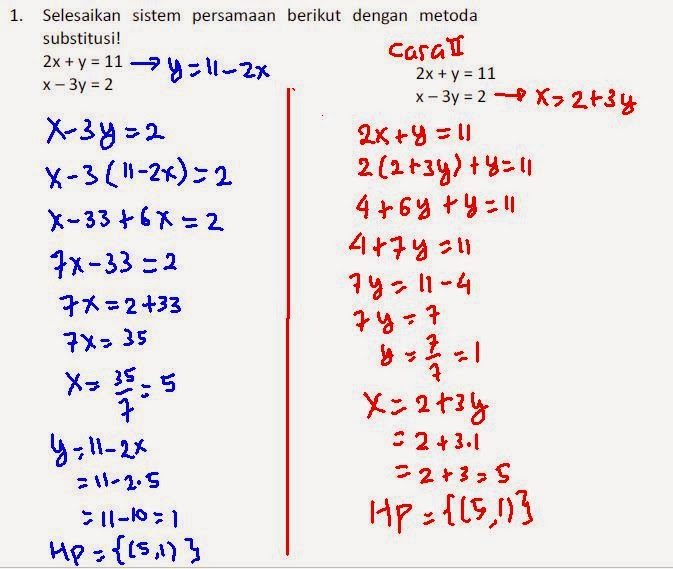 1. Selesaikan sistem persamaan berikut dengan metoda
substitusi!
2x + y = 11 → y = 11 - 2x
x – 3y = 2
x - 3y = 2
x - 3(11 - 2x) = 2
x - 33 + 6x = 2
7x - 33 = 2
7x = 2 + 33
7x = 35
x = 35/7 = 5
y = 11 - 2x
= 11 - 2.5
= 11 - 10 = 1
Hp = {(5,1)}
Cara II
2x + y = 11
x – 3y = 2 → x = 2 + 3y
2x + y = 11
2(2 + 3y) + y = 11
4 + 6y + y = 11
4 + 7y = 11
7y = 11 - 4
7y = 7
y = 7/7 = 1
x = 2 + 3y
= 2 + 3.1
= 2 + 3 = 5
Hp = {(5,1)}